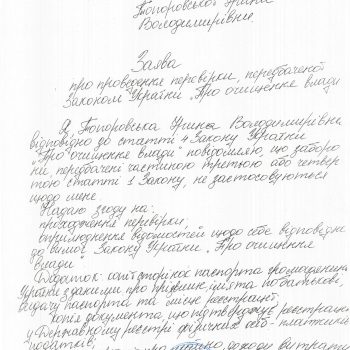 Топоровської Ірини
Володимирівни.
Заява
про проведення перевірки, передбаченої
Законом України „Про очищення влади"
Я, Топоровська Ірина Володимирівна
відповідно до статті 4 Закону України
„Про очищення влади" повідомляю, що заборо
ни, передбачені частиною третьою або четвер
тою статті 1 Закону, не застосовуються
щодо мене
Надаю згоду на:
проходження перевірки;
оприлюднення відомостей щодо себе відповідно
до вимог Закону України „Про очищення
влади"
Додаток: копії сторінок паспорта громадянина
України з даними про прізвище, ім'я та по батькові,
видачу паспорта та місце реєстрації,
копія документа, що підтверджує реєстрацію
у Державному реєстрі фізичних осіб-платників
податків;
майно, доходи, витрати